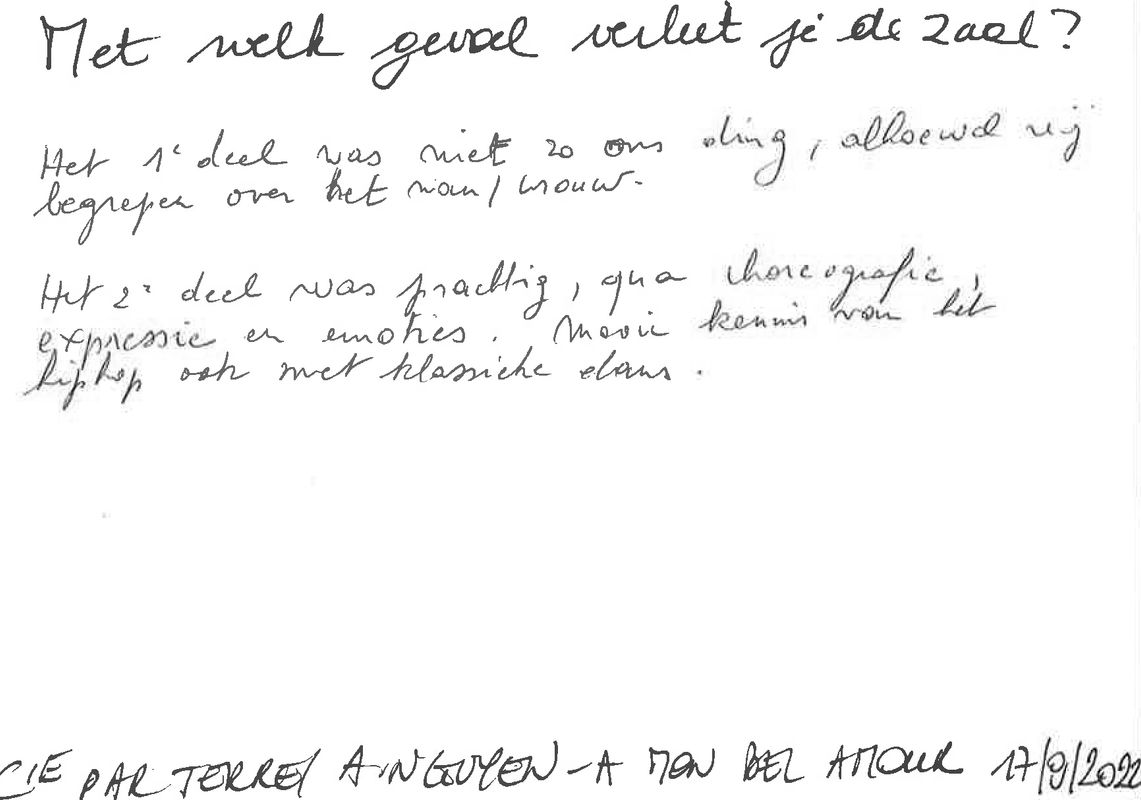 Met welk gevoel verliet je de zaal?
Het 1e deel was niet zo ons ding, alhoewel wij
begrepen over het man/vrouw.
Het 2e deel was prachtig, qua choreografie,
expressie en emoties. Mooie kennis van het
hiphop ook met klassieke dans.
CIE PAR TERRE/ A. NGUYEN - A MON BEL AMOUR 17/9/2022